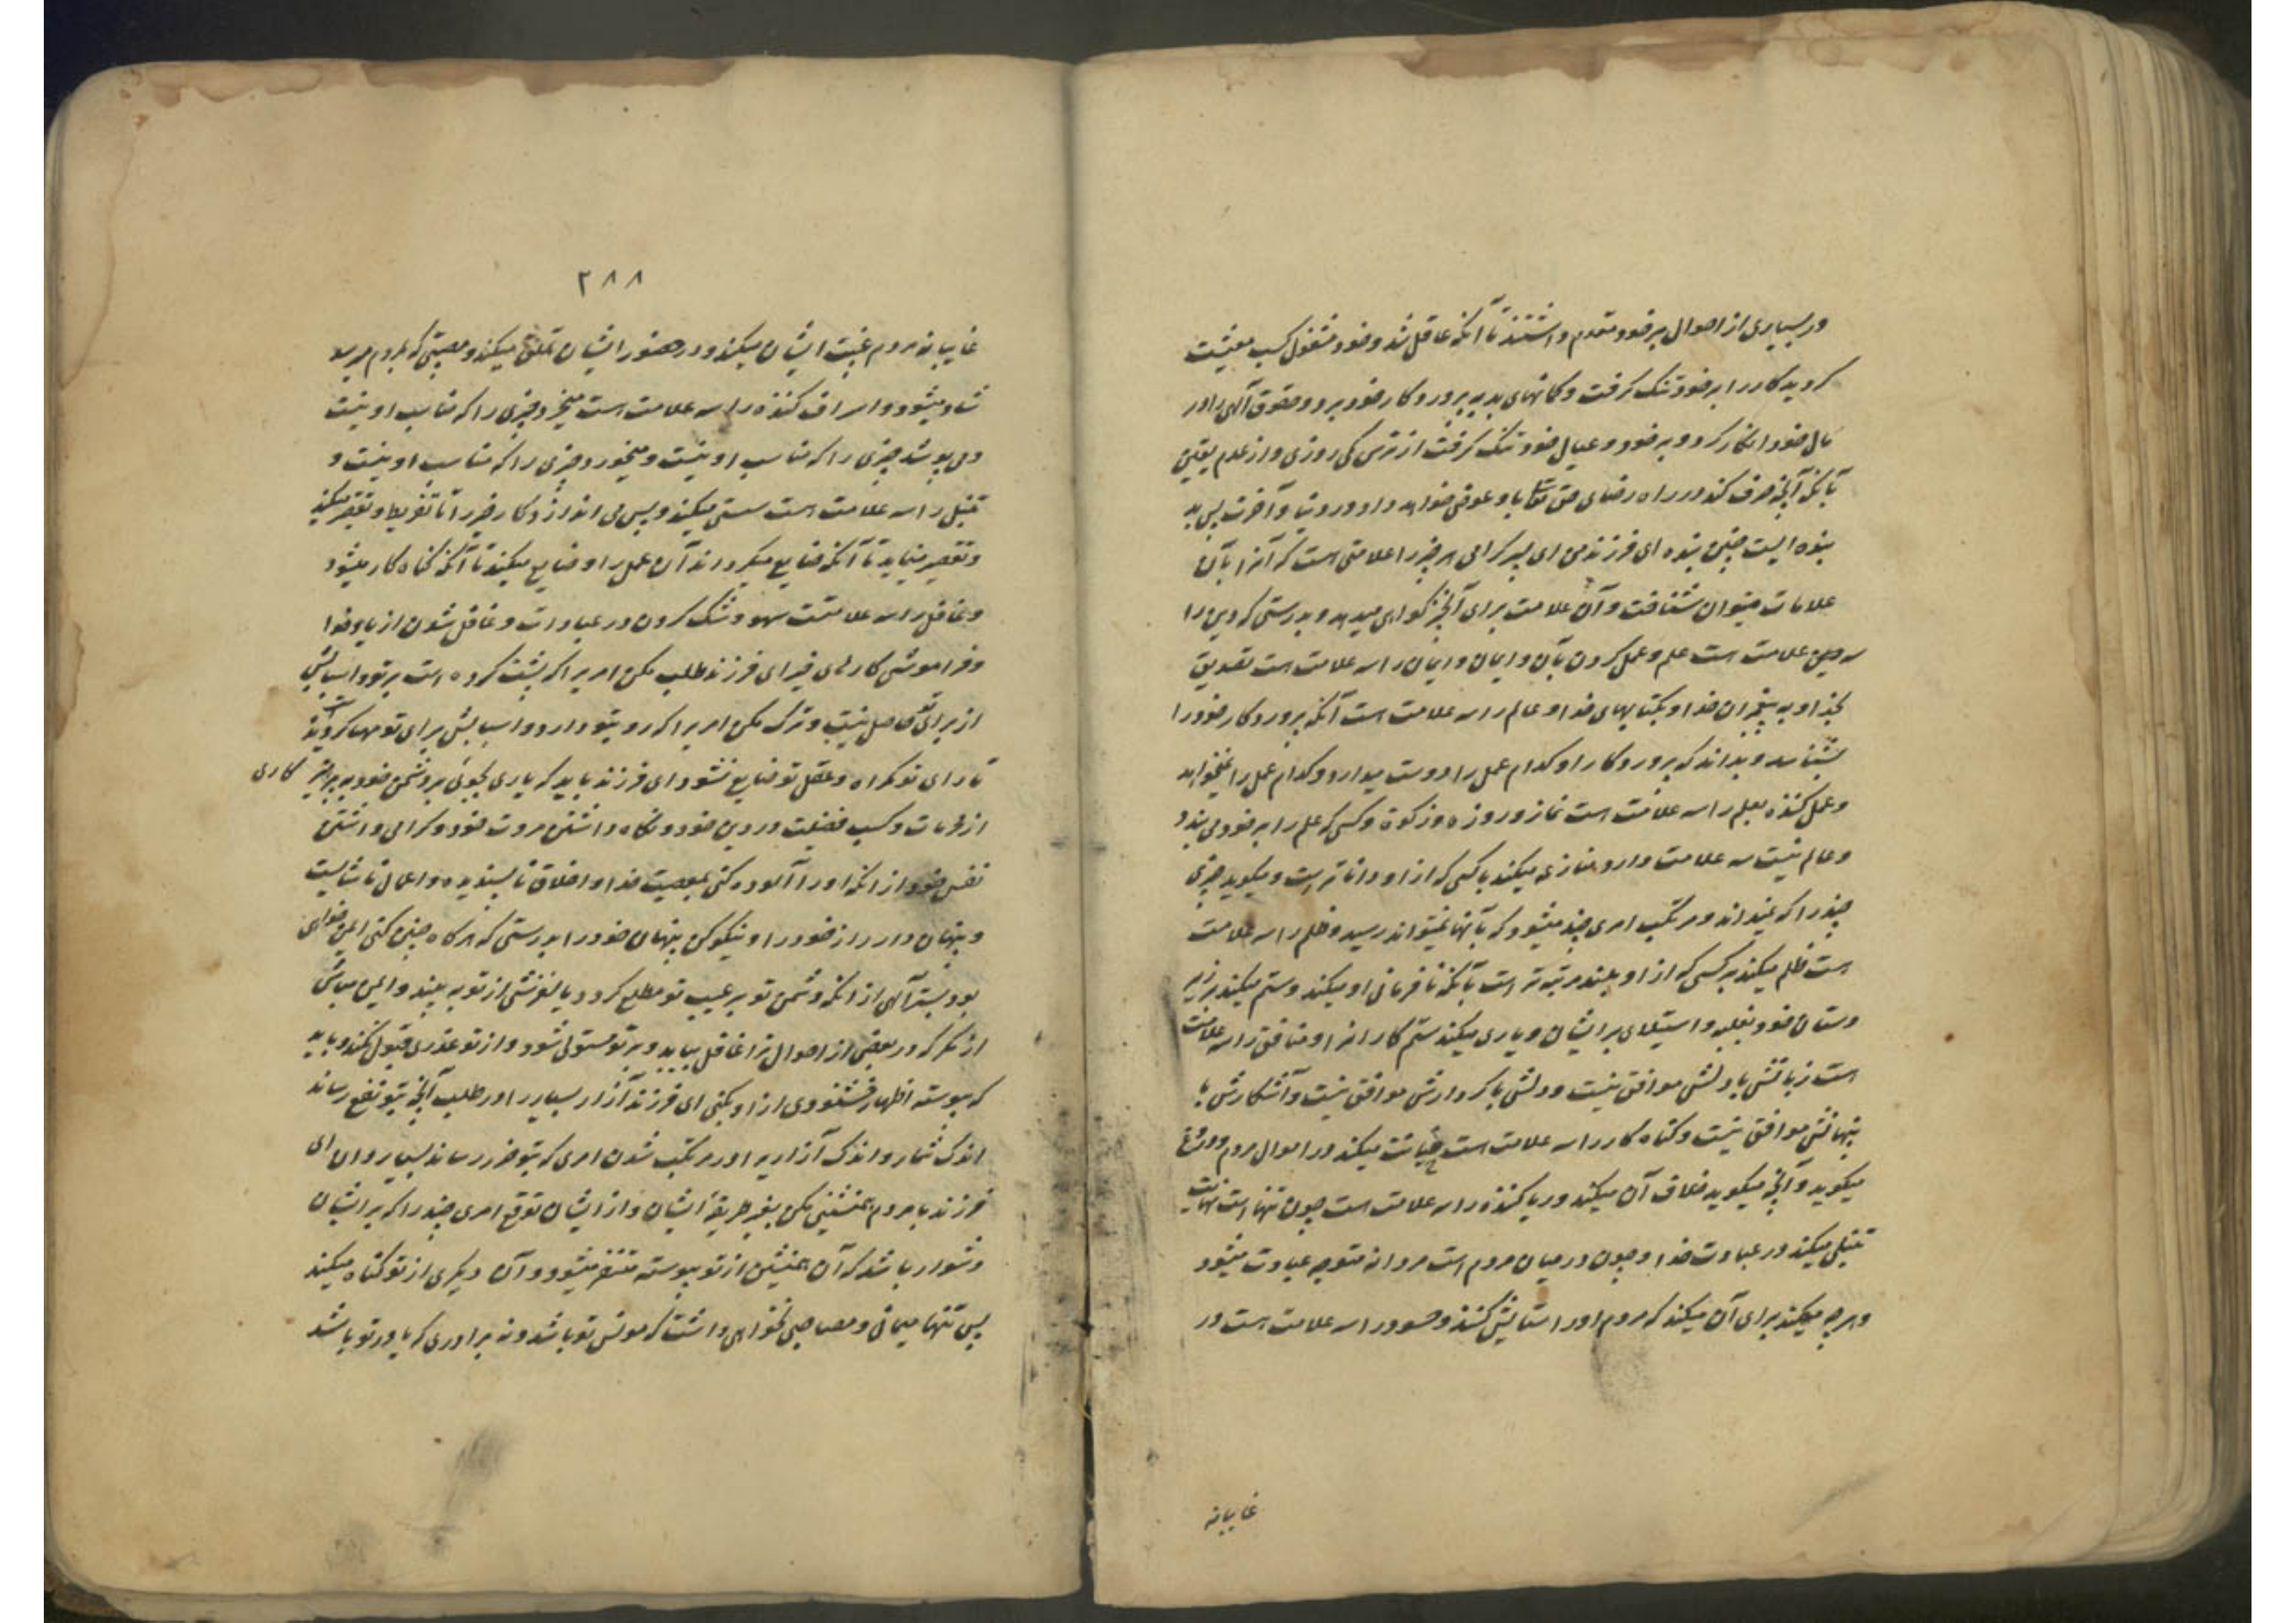 در بسیاری از احوال بر خود مقدم داشتند تا آنکه عاقل شد و خود مشغول کسب معیشت
گردید کار را بر خود تنک گرفت و گمانهای بد به پروردگار خود برد و حقوق الهی را در
مال خود انکار کرد و بر خود و عیال خود تنک گرفت از ترس کمی روزی و از عدم یقین
بآنکه آنچه صرف کند در راه رضای حق تعالی باو عوض خواهد داد در دنیا و آخرت پس بد
بنده ایست چنین بنده ای فرزند من ای پسر گرامی هر چیز را علامتی است که آنرا بآن
علامات میتوان شناخت و آن علامت برای آنچیز گواهی میدهد و بدرستی که دین را
سه علامت است علم و عمل کردن بآن و ایمان و ایمان را سه علامت است تصدیق
بخدا و به پیغمبران خدا و بکتابهای خدا و عالم را سه علامت است آنکه پروردگار خود را
بشناسد و بداند که پروردگار او کدام عمل را دوست میدارد و کدام عمل را نمیخواهد
و عمل کننده بعلم را سه علامت است نماز و روزه و زکوة و کسی که علم را بر خود می بندد
و عالم نیست سه علامت دارد منازعه میکند با کسی که از او داناتر است و میگوید چیزی
چند را که نمیداند و مرتکب امری چند میشود که بآنها نمیتواند رسید و ظلم را سه علامت
است ظلم میکند به کسی که از او بلند مرتبه تر است بآنکه نافرمانی او میکند و ستم میکند بر زیر
دستان خود بغلبه و استیلای بر ایشان و یاری میکند ستم کاران را و منافق را سه علامت
است زبانش با دلش موافق نیست و دلش با کردارش موافق نیست و آشکارش با
پنهانش موافق نیست و گناه کار را سه علامت است خیانت میکند در اموال مردم و دروغ
میگوید و آنچه میگوید خلاف آن میکند و ریا کننده را سه علامت است چون تنها است نهایت
تنبلی میکند در عبادت خدا و چون در میان مردم است مردانه متوجه عبادت میشود
و هر چه میکند برای آن میکند که مردم او را ستایش کنند و حسود را سه علامت است در
غایبانه
۲۸۸
غایبانه مردم غیبت ایشان میکند و در حضور ایشان تملق میکند و مصیبتی که بمردم میرسد
شاد میشود و اسراف کننده را سه علامت است میخرد چیزی را که مناسب او نیست
و می پوشد چیزی را که مناسب او نیست و میخورد چیزی را که مناسب او نیست و
تنبل را سه علامت است سستی میکند و پس می اندازد کار خیر را تا تفریط و تقصیر میکند
و تقصیر مینماید تا آنکه ضایع میگرداند آن عمل را و ضایع میکند تا آنکه گناه کار میشود
و غافل را سه علامتست سهو و شک کردن در عبادات و غافل شدن از یاد خدا
و فراموشی کارهای خیر ای فرزند طلب مکن امر یرا که پشت کرده است بر تو و اسبابش
از برای تو حاصل نیست و ترک مکن امر یرا که رو بتو دارد و اسبابش برای تو مهیا گردیده
تا رای تو گمراه و عقل تو ضایع نشود ای فرزند باید که یاری بجوئی بر دشمن خود به پرهیز کاری
از محرمات و کسب فضیلت در دین خود و نگاه داشتن مروت خود و گرامی داشتن
نفس خود از آنکه او را آلوده کنی بمعصیت خدا و اخلاق ناپسندیده و اعمال ناشایست
و پنهان دار راز خود را و نیکو کن پنهان خود را بدرستی که هر گاه چنین کنی ایمن خواهی
بود بستر الهی از آنکه دشمن تو بر عیب تو مطلع گردد یا لغزشی از تو به بیند و ایمن مباش
از مکر که در بعضی از احوال ترا غافل بیابد و بر تو مستولی شود و از تو عذری قبول نکند و باید
که پیوسته اظهار خشنودی از او بکنی ای فرزند آزار بسیار را در طلب آنچه بتو نفع رساند
اندک شمار و اندک آزاریرا در مرتکب شدن امری که بتو ضرر رساند بسیار دان ای
فرزند با مردم همنشینی مکن بغیر طریقه ایشان و از ایشان توقع امری چند را که بر ایشان
دشوار باشد که آن همنشین از تو پیوسته متنفر میشود و آن دیگری از تو کناره میکند
پس تنها میمانی و مصاحبی نخواهی داشت که مونس تو باشد و نه برادری که یاور تو باشد